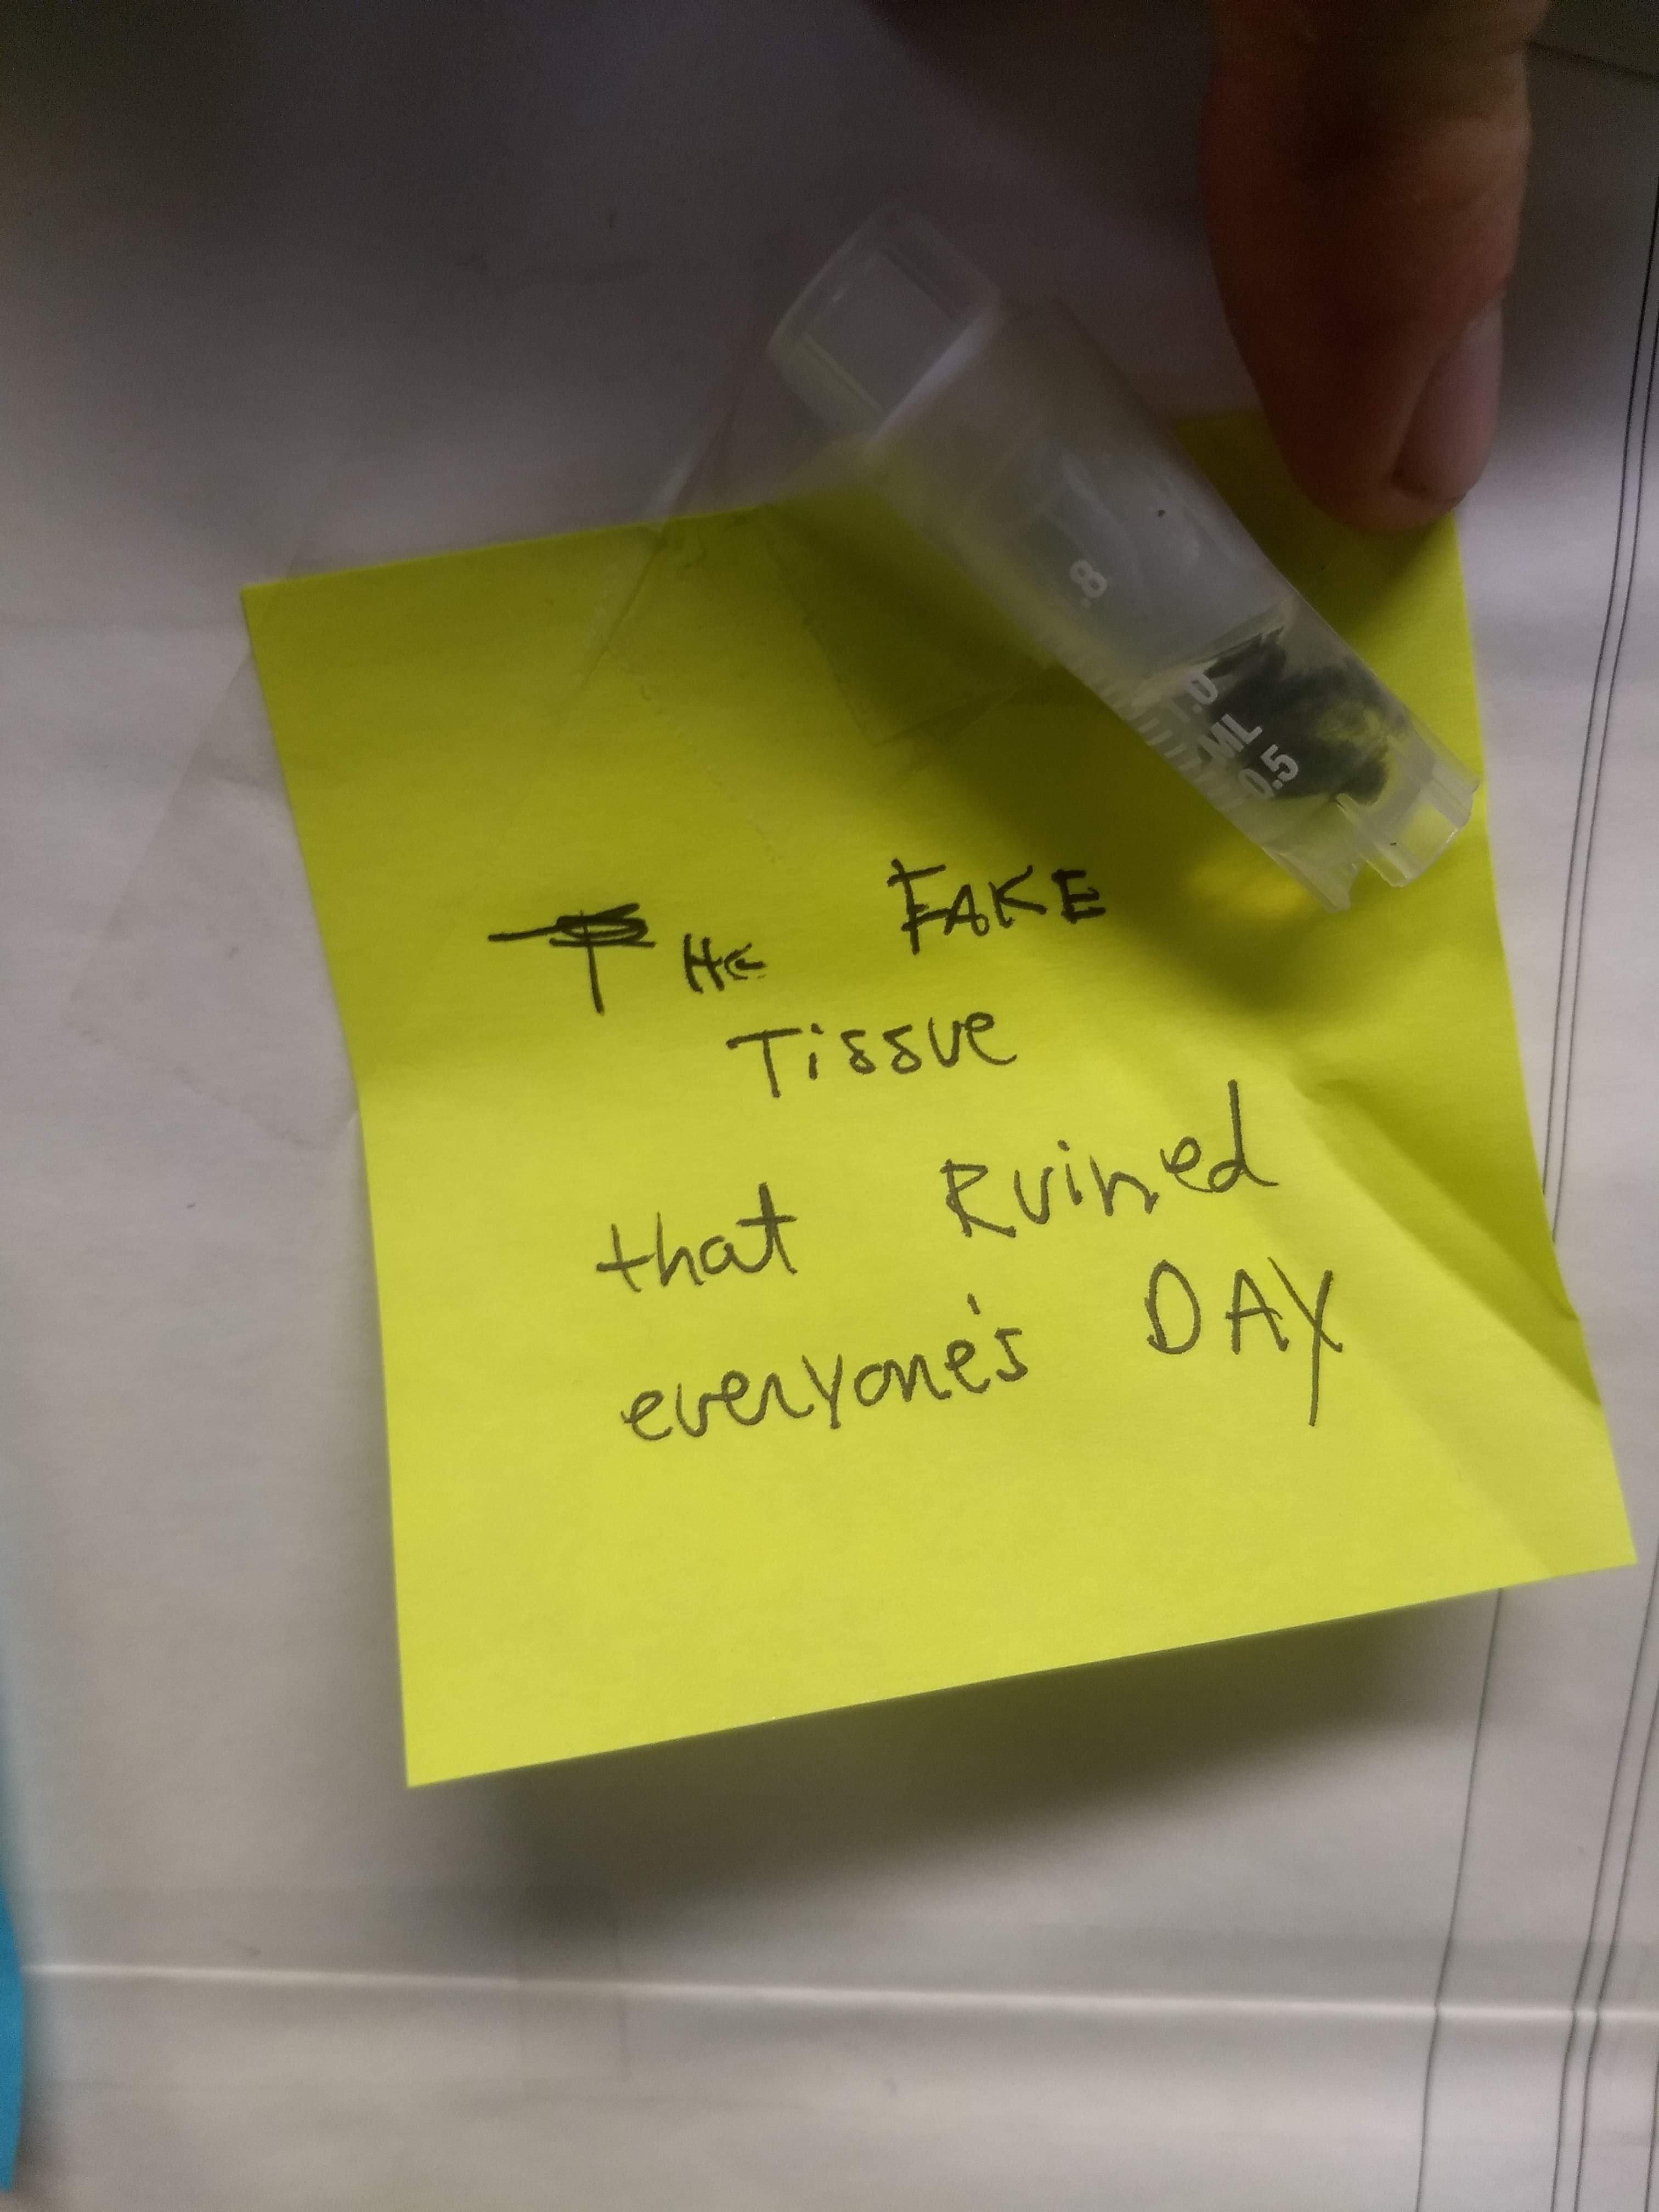 .8
1.0
ML
0.5
THE FAKE
Tissue
that Ruined
everyone's DAY